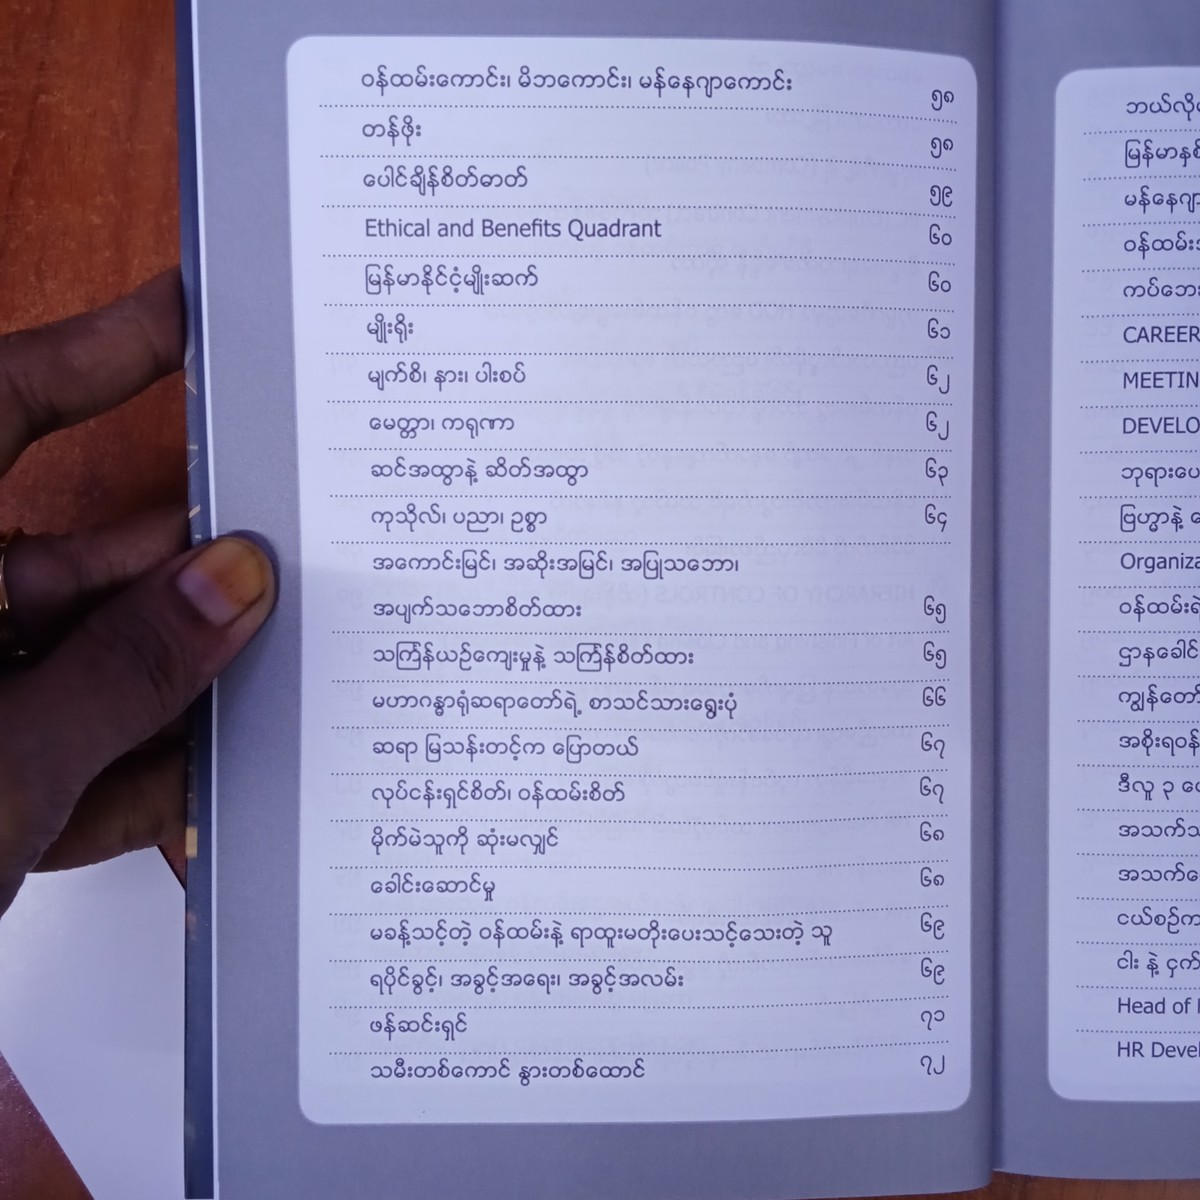 ဝန်ထမ်းကောင်း၊ မိဘကောင်း၊ မန်နေဂျာကောင်း ၅၈
တန်ဖိုး ၅၈
ပေါင်ချိန်စိတ်ဓာတ် ၅၉
Ethical and Benefits Quadrant ၆၀
မြန်မာနိုင်ငံ့မျိုးဆက် ၆၀
မျိုးရိုး ၆၁
မျက်စိ၊ နား၊ ပါးစပ် ၆၂
မေတ္တာ၊ ကရုဏာ ၆၂
ဆင်အထွာနဲ့ ဆိတ်အထွာ ၆၃
ကုသိုလ်၊ ပညာ၊ ဥစ္စာ ၆၄
အကောင်းမြင်၊ အဆိုးအမြင်၊ အပြုသဘော၊
အပျက်သဘောစိတ်ထား ၆၅
သင်္ကြန်ယဉ်ကျေးမှုနဲ့ သင်္ကြန်စိတ်ထား ၆၅
မဟာဂန္ဓာရုံဆရာတော်ရဲ့ စာသင်သားရွေးပုံ ၆၆
ဆရာ မြသန်းတင့်က ပြောတယ် ၆၇
လုပ်ငန်းရှင်စိတ်၊ ဝန်ထမ်းစိတ် ၆၇
မိုက်မဲသူကို ဆုံးမလျှင် ၆၈
ခေါင်းဆောင်မှု ၆၈
မခန့်သင့်တဲ့ ဝန်ထမ်းနဲ့ ရာထူးမတိုးပေးသင့်သေးတဲ့ သူ ၆၉
ရပိုင်ခွင့်၊ အခွင့်အရေး၊ အခွင့်အလမ်း ၆၉
ဖန်ဆင်းရှင် ၇၁
သမီးတစ်ကောင် နွားတစ်ထောင် ၇၂
ဘယ်လို
မြန်မာ
မန်နေဂျာ
ဝန်ထမ်း
ကပ်ဘေး
CAREER
MEETIN
DEVELO
ဘုရားပေ
ဗြဟ္မာနဲ့
Organiza
ဝန်ထမ်းရဲ
ဌာနခေါင်
ကျွန်တော်
အစိုးရဝန်
ဒီလူ ၃
အသက်သ
အသက်
ငယ်စဉ်က
ငါး နဲ့ ငှက်
Head of
HR Devel